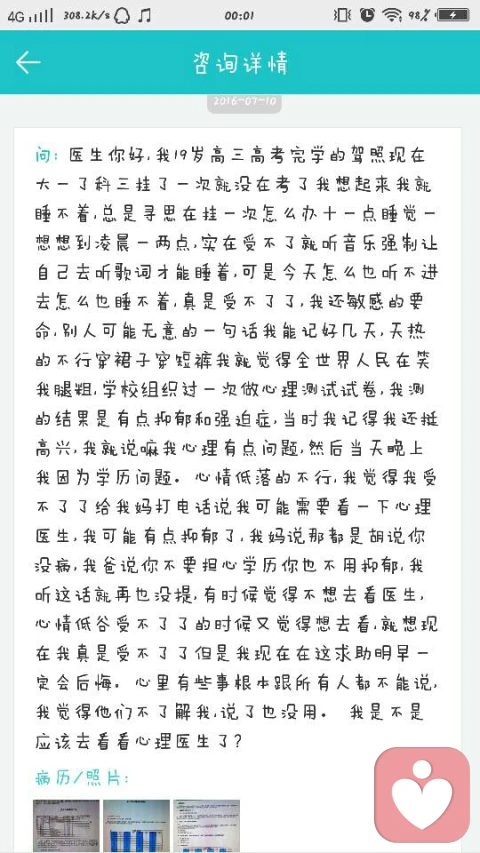 4G 308.2k/s 00:01 98%
咨询详情
2016-07-10
问: 医生你好,我19岁高三高考完学的驾照现在
大一了科三挂了一次就没在考了我想起来我就
睡不着,总是寻思在挂一次怎么办十一点睡觉一
想想到凌晨一两点,实在受不了就听音乐强制让
自己去听歌词才能睡着,可是今天怎么也听不进
去怎么也睡不着,真是受不了了,我还敏感的要
命,别人可能无意的一句话我能记好几天,天热
的不行穿裙子穿短裤我就觉得全世界人民在笑
我腿粗,学校组织过一次做心理测试试卷,我测
的结果是有点抑郁和强迫症,当时我记得我还挺
高兴,我就说嘛我心理有点问题,然后当天晚上
我因为学历问题。心情低落的不行,我觉得我受
不了了给我妈打电话说我可能需要看一下心理
医生,我可能有点抑郁了,我妈说那都是胡说你
没病,我爸说你不要担心学历你也不用抑郁,我
听这话就再也没提,有时候觉得不想去看医生,
心情低谷受不了了的时候又觉得想去看,就想现
在我真是受不了了但是我现在在这求助明早一
定会后悔。心里有些事根本跟所有人都不能说,
我觉得他们不了解我,说了也没用。 我是不是
应该去看看心理医生了?
病历/照片: